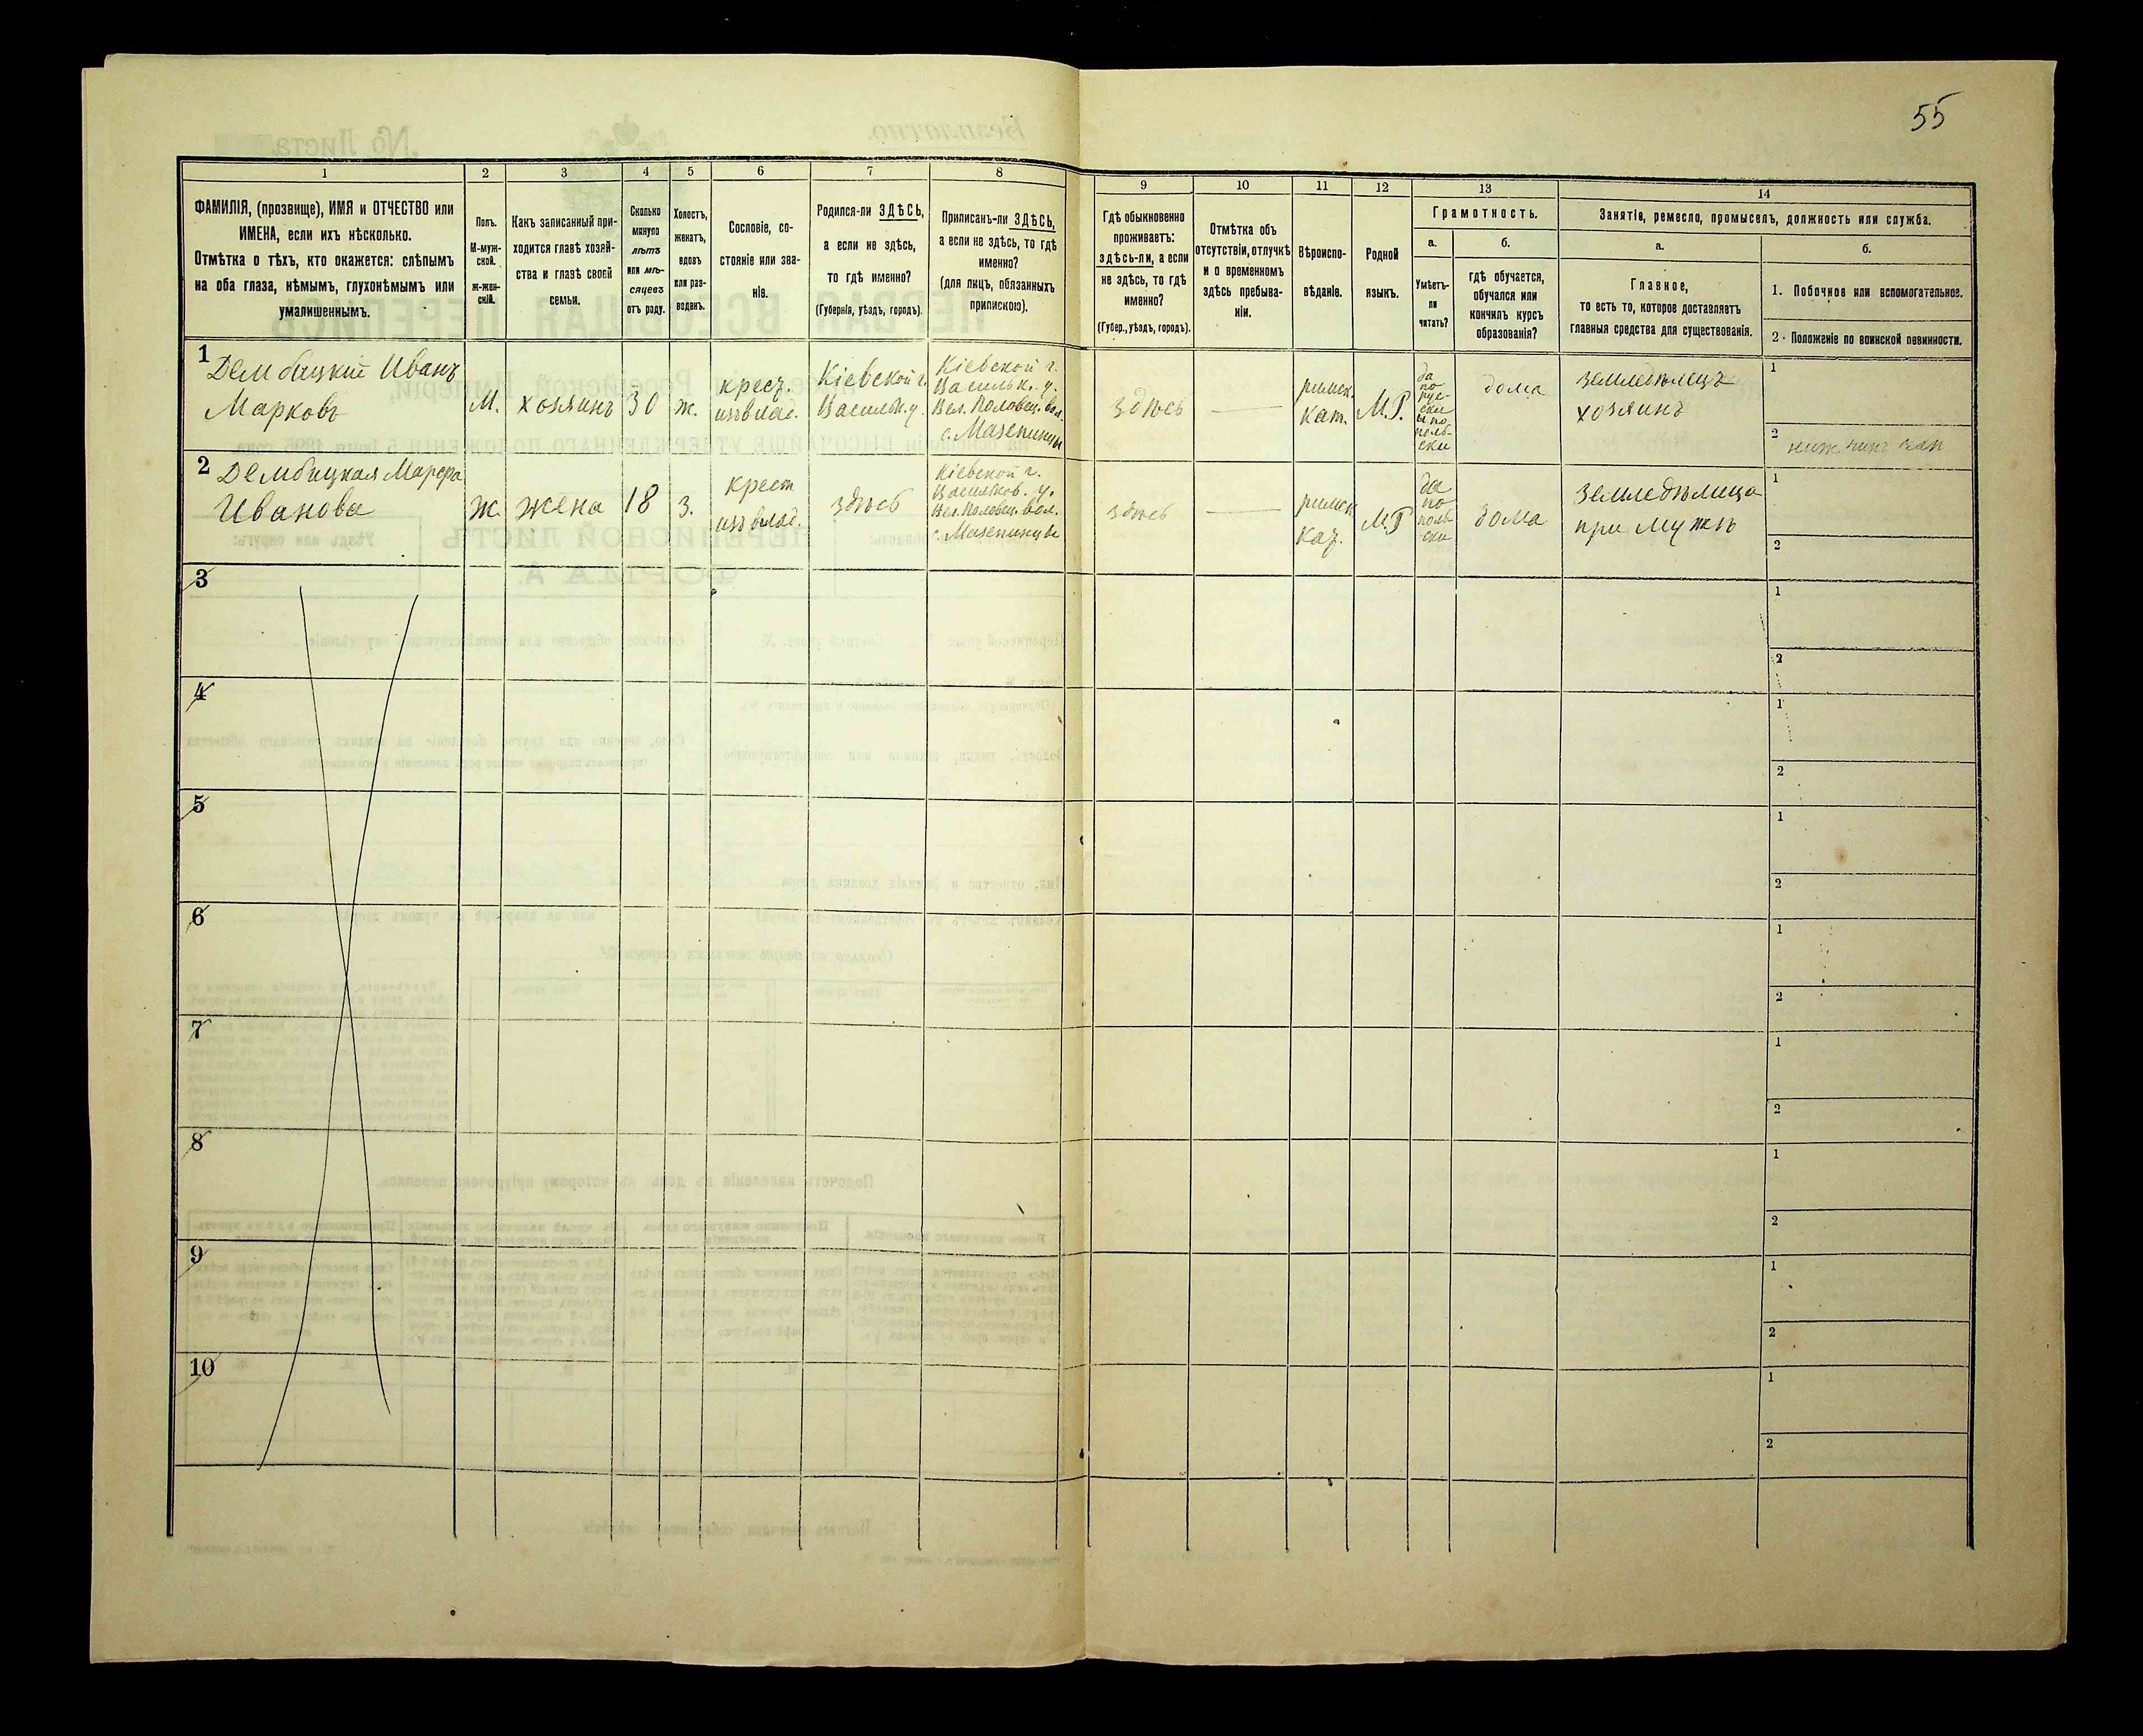 55
1
2
3
4
5
6
7
8
9
10
11
12
13
14
ФАМИЛІЯ, (прозвище), ИМЯ и ОТЧЕСТВО или
ИМЕНА, если ихъ нѣсколько.
Отмѣтка о тѣхъ, кто окажется: слѣпымъ
на оба глаза, нѣмымъ, глухонѣмымъ или
умалишеннымъ.
Полъ.
М-муж-
ской.
ж-жен-
скій.
Какъ записанный при-
ходится главѣ хозяй-
ства и главѣ своей
семьи.
Сколько
минуло
лѣтъ
или мѣ-
сяцевъ
отъ роду.
Холостъ,
женатъ,
вдовъ
или раз-
веденъ.
Сословіе, со-
стояніе или зва-
ніе.
Родился-ли ЗДѢСЬ,
а если не здѣсь,
то гдѣ именно?
(Губернія, уѣздъ, городъ).
Приписанъ-ли ЗДѢСЬ,
а если не здѣсь, то гдѣ
именно?
(для лицъ, обязанныхъ
припискою).
Гдѣ обыкновенно
проживаетъ:
здѣсь-ли, а если
не здѣсь, то гдѣ
именно?
(Губер., уѣздъ, городъ).
Отмѣтка объ
отсутствіи, отлучкѣ
и о временномъ
здѣсь пребыва-
ніи.
Вѣроиспо-
вѣданіе.
Родной
языкъ.
Грамотность.
а.
Умѣетъ-
ли
читать?
б.
гдѣ обучается,
обучался или
кончилъ курсъ
образованія?
Занятіе, ремесло, промыселъ, должность или служба.
а.
Главное,
то есть то, которое доставляетъ
главныя средства для существованія.
б.
1. Побочное или вспомогательное.
2. Положеніе по воинской повинности.
1
Дембицкій Иванъ
Марковъ
М.
хозяинъ
30
ж.
крест.
изъ влад.
Кіевской г.
Васильк. у.
Кіевской г.
Васильк. у.
Вел. Половец. вол.
с. Мазепинцы
здѣсь
римск.
кат.
М.Р.
да
по
рус-
ски
и по
поль-
ски
дома
земледѣлецъ
хозяинъ
1
2
2
Дембицкая Марфа
Иванова
Ж.
жена
18
З.
крест
изъ влад.
здѣсь
Кіевской г.
Васильков. у.
Вел. Половец. вол.
с. Мазепинцы
здѣсь
римск
кат.
М.Р
да
по
поль-
ски
дома
земледѣлица
при мужѣ
1
2
3
1
2
4
1
2
5
1
2
6
1
2
7
1
2
8
1
2
9
1
2
10
1
2